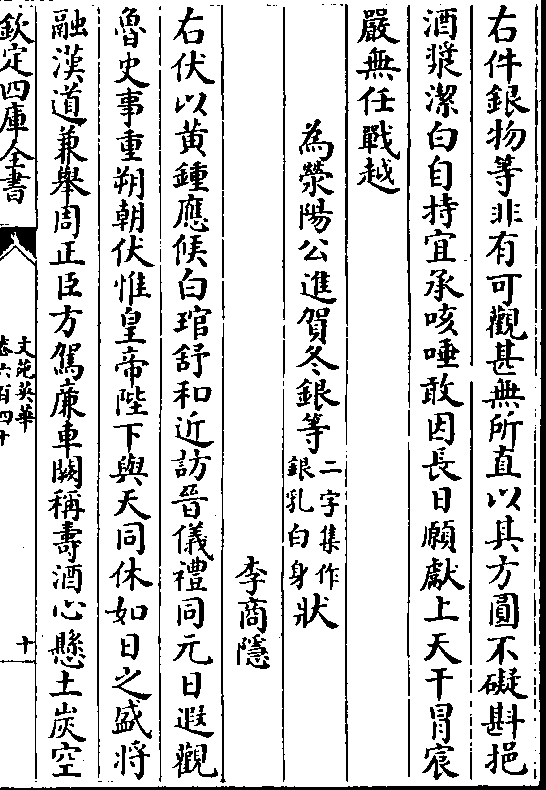 右件銀物等非有可觀甚無所直以其方圓不礙斟挹
酒漿潔白自持宜承咳唾敢因長日願獻上天干冒宸
嚴無任戰越
為滎陽公進賀冬銀等二字集作銀乳白身狀
李商隱
右伏以黃鍾應候白琯舒和近訪晉儀禮同元日遐觀
魯史事重朔朝伏惟皇帝陛下與天同休如日之盛將
融漢道兼舉周正臣方駕廉車闕稱壽酒心懸土炭空
欽定四庫全書
文苑英華
卷六百四十
十